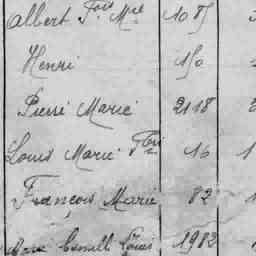 Albert Fois Mie 1085
Henri 150
Pierre Marie 2118
Louis Marie 16
François Marie 82
Louis 1982